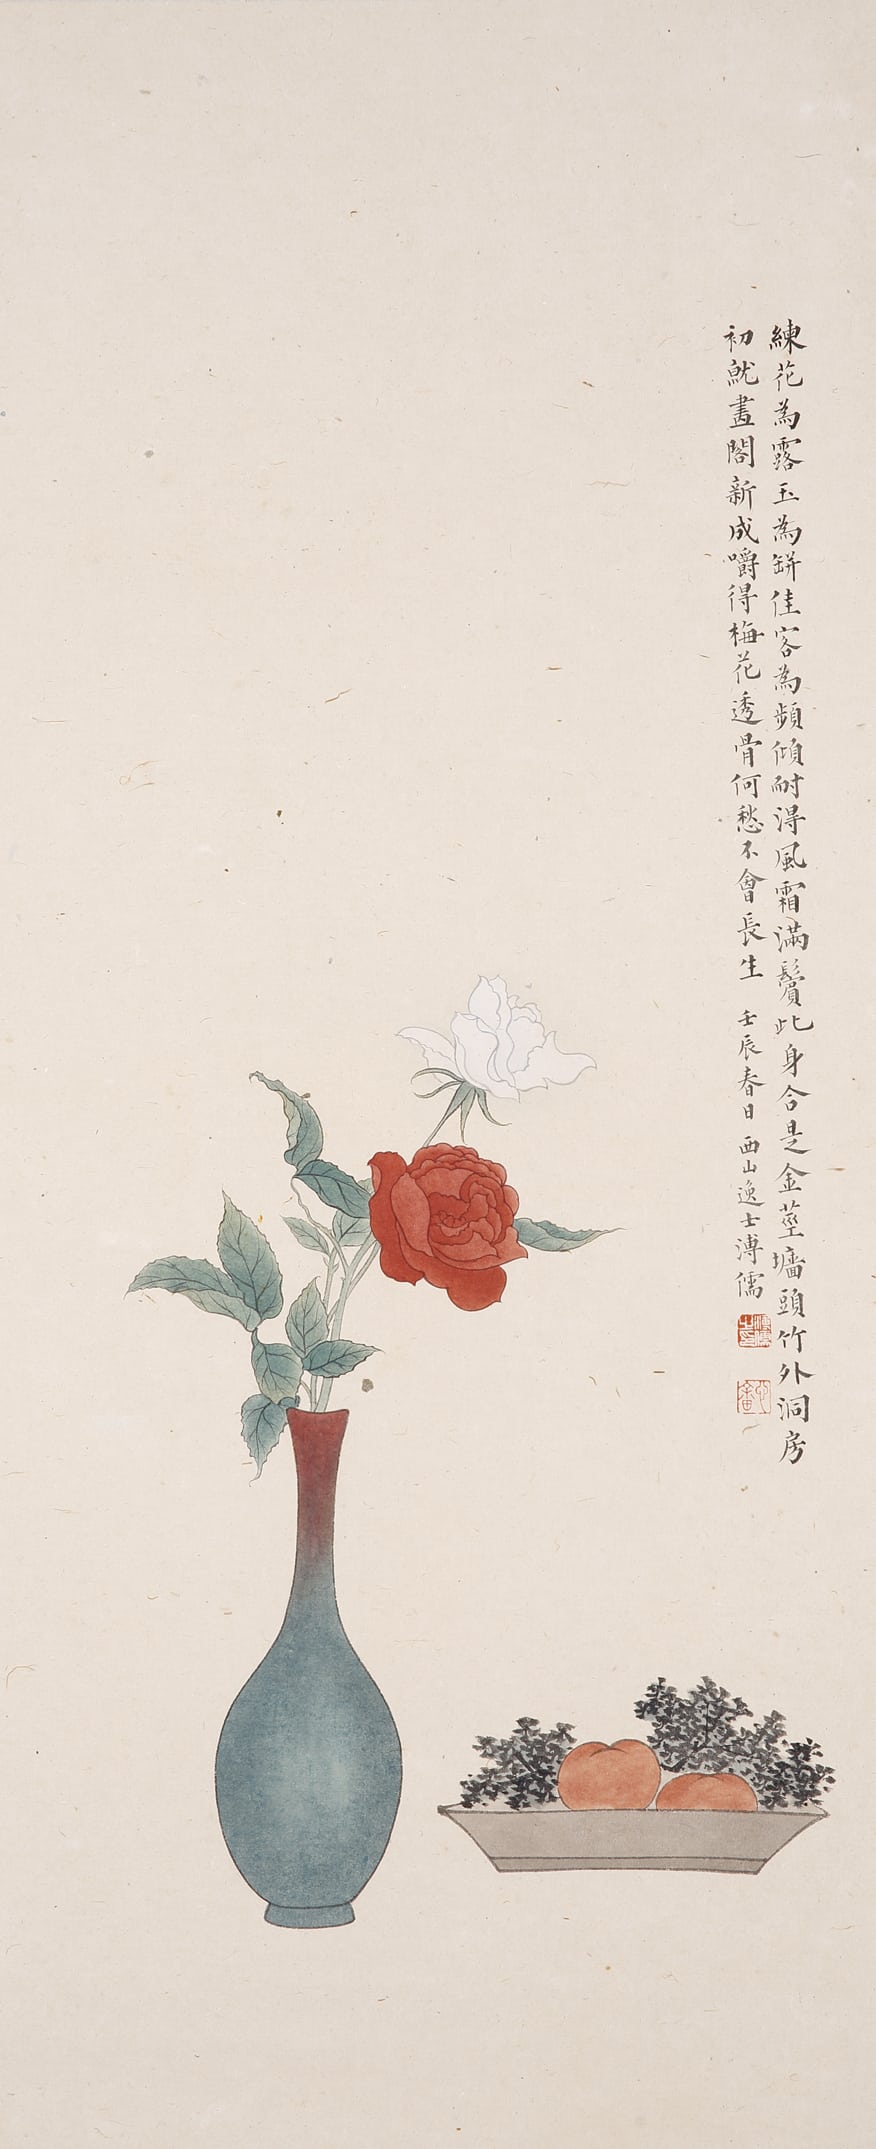 練花為露玉為缾佳客為頻傾耐得風霜滿鬢此身合是金莖墻頭竹外洞房
初就畫閣新成嚼得梅花透骨何愁不會長生 壬辰春日 西山逸士溥儒